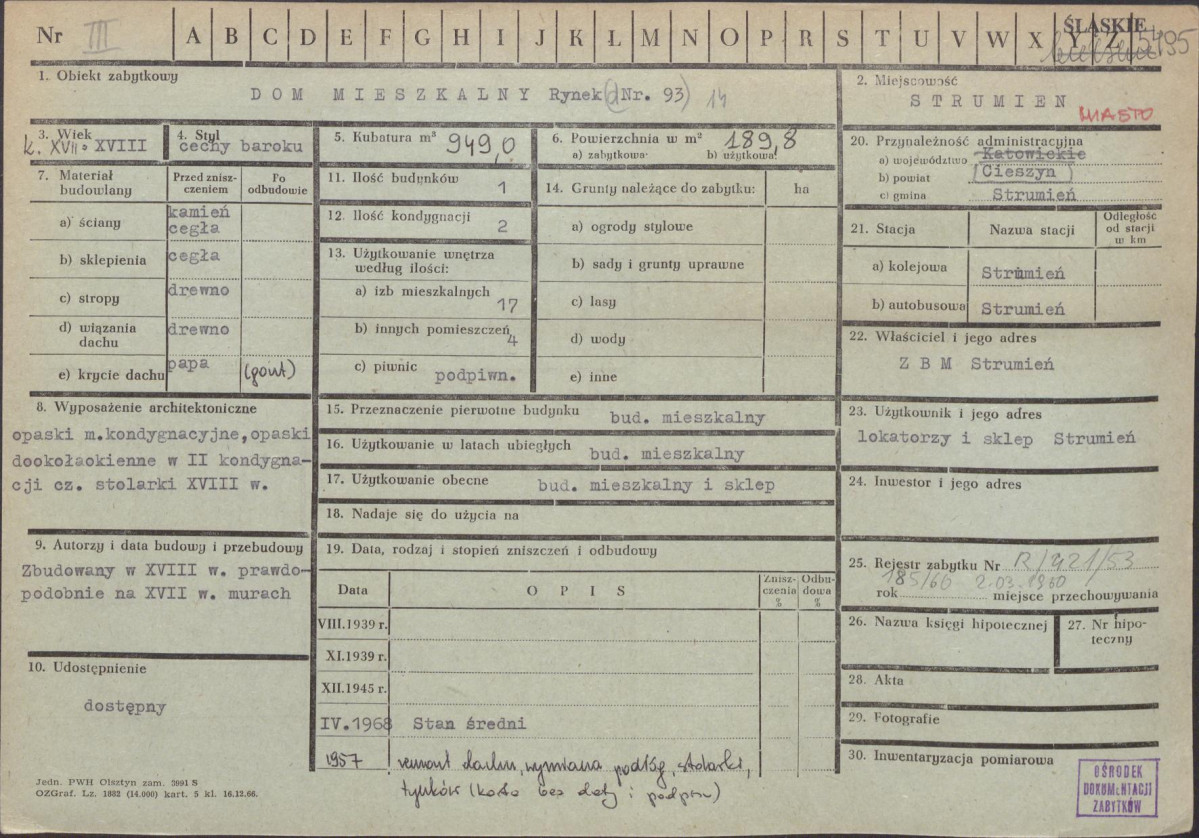 Nr III A B C D E F G H I J K L Ł M N O P R S T U V W X Y Z
ŚLĄSKIE
5495
1. Obiekt zabytkowy
DOM MIESZKALNY Rynek (d Nr. 93) 14
2. Miejscowość
STRUMIEN
MIASTO
3. Wiek
k. XVII XVIII
4. Styl
cechy baroku
5. Kubatura m³ 949,0
6. Powierzchnia w m² 189,8
a) zabytkowa b) użytkowa
7. Materiał budowlany
Przed zniszczeniem
Po odbudowie
a) ściany kamień cegła
b) sklepienia cegła
c) stropy drewno
d) wiązania dachu drewno
e) krycie dachu papa (gont)
8. Wyposażenie architektoniczne
opaski m.kondygnacyjne,opaski
dookołaokienne w II kondygna-
cji cz. stolarki XVIII w.
9. Autorzy i data budowy i przebudowy
Zbudowany w XVIII w. prawdo-
podobnie na XVII w. murach
10. Udostępnienie
dostępny
11. Ilość budynków 1
12. Ilość kondygnacji 2
13. Użytkowanie wnętrza
według ilości:
a) izb mieszkalnych 17
b) innych pomieszczeń 4
c) piwnic podpiwn.
14. Grunty należące do zabytku: ha
a) ogrody stylowe
b) sady i grunty uprawne
c) lasy
d) wody
e) inne
15. Przeznaczenie pierwotne budynku bud. mieszkalny
16. Użytkowanie w latach ubiegłych bud. mieszkalny
17. Użytkowanie obecne bud. mieszkalny i sklep
18. Nadaje się do użycia na
19. Data, rodzaj i stopień zniszczeń i odbudowy
Data OPIS Zniszczenia % Odbudowa %
VIII.1939 r.
XI.1939 r.
XII.1945 r.
IV.1968 Stan średni
1957 remont dachu, wymiana podłóg, stolarki,
tynków (karta bez daty i podpisu)
20. Przynależność administracyjna
a) województwo Katowickie
b) powiat (Cieszyn)
c) gmina Strumień
21. Stacja Nazwa stacji Odległość od stacji w km
a) kolejowa Strumień
b) autobusowa Strumień
22. Właściciel i jego adres
Z B M Strumień
23. Użytkownik i jego adres
lokatorzy i sklep Strumień
24. Inwestor i jego adres
25. Rejestr zabytku Nr R/421/53
185/60 2.03.1960
rok miejsce przechowywania
26. Nazwa księgi hipotecznej
27. Nr hipoteczny
28. Akta
29. Fotografie
30. Inwentaryzacja pomiarowa
OŚRODEK
DOKUMENTACJI
ZABYTKÓW
Jedn. PWH Olsztyn zam. 3991 S
OZGraf. Lz. 1882 (14.000) kart. 5 kl. 16.12.66.